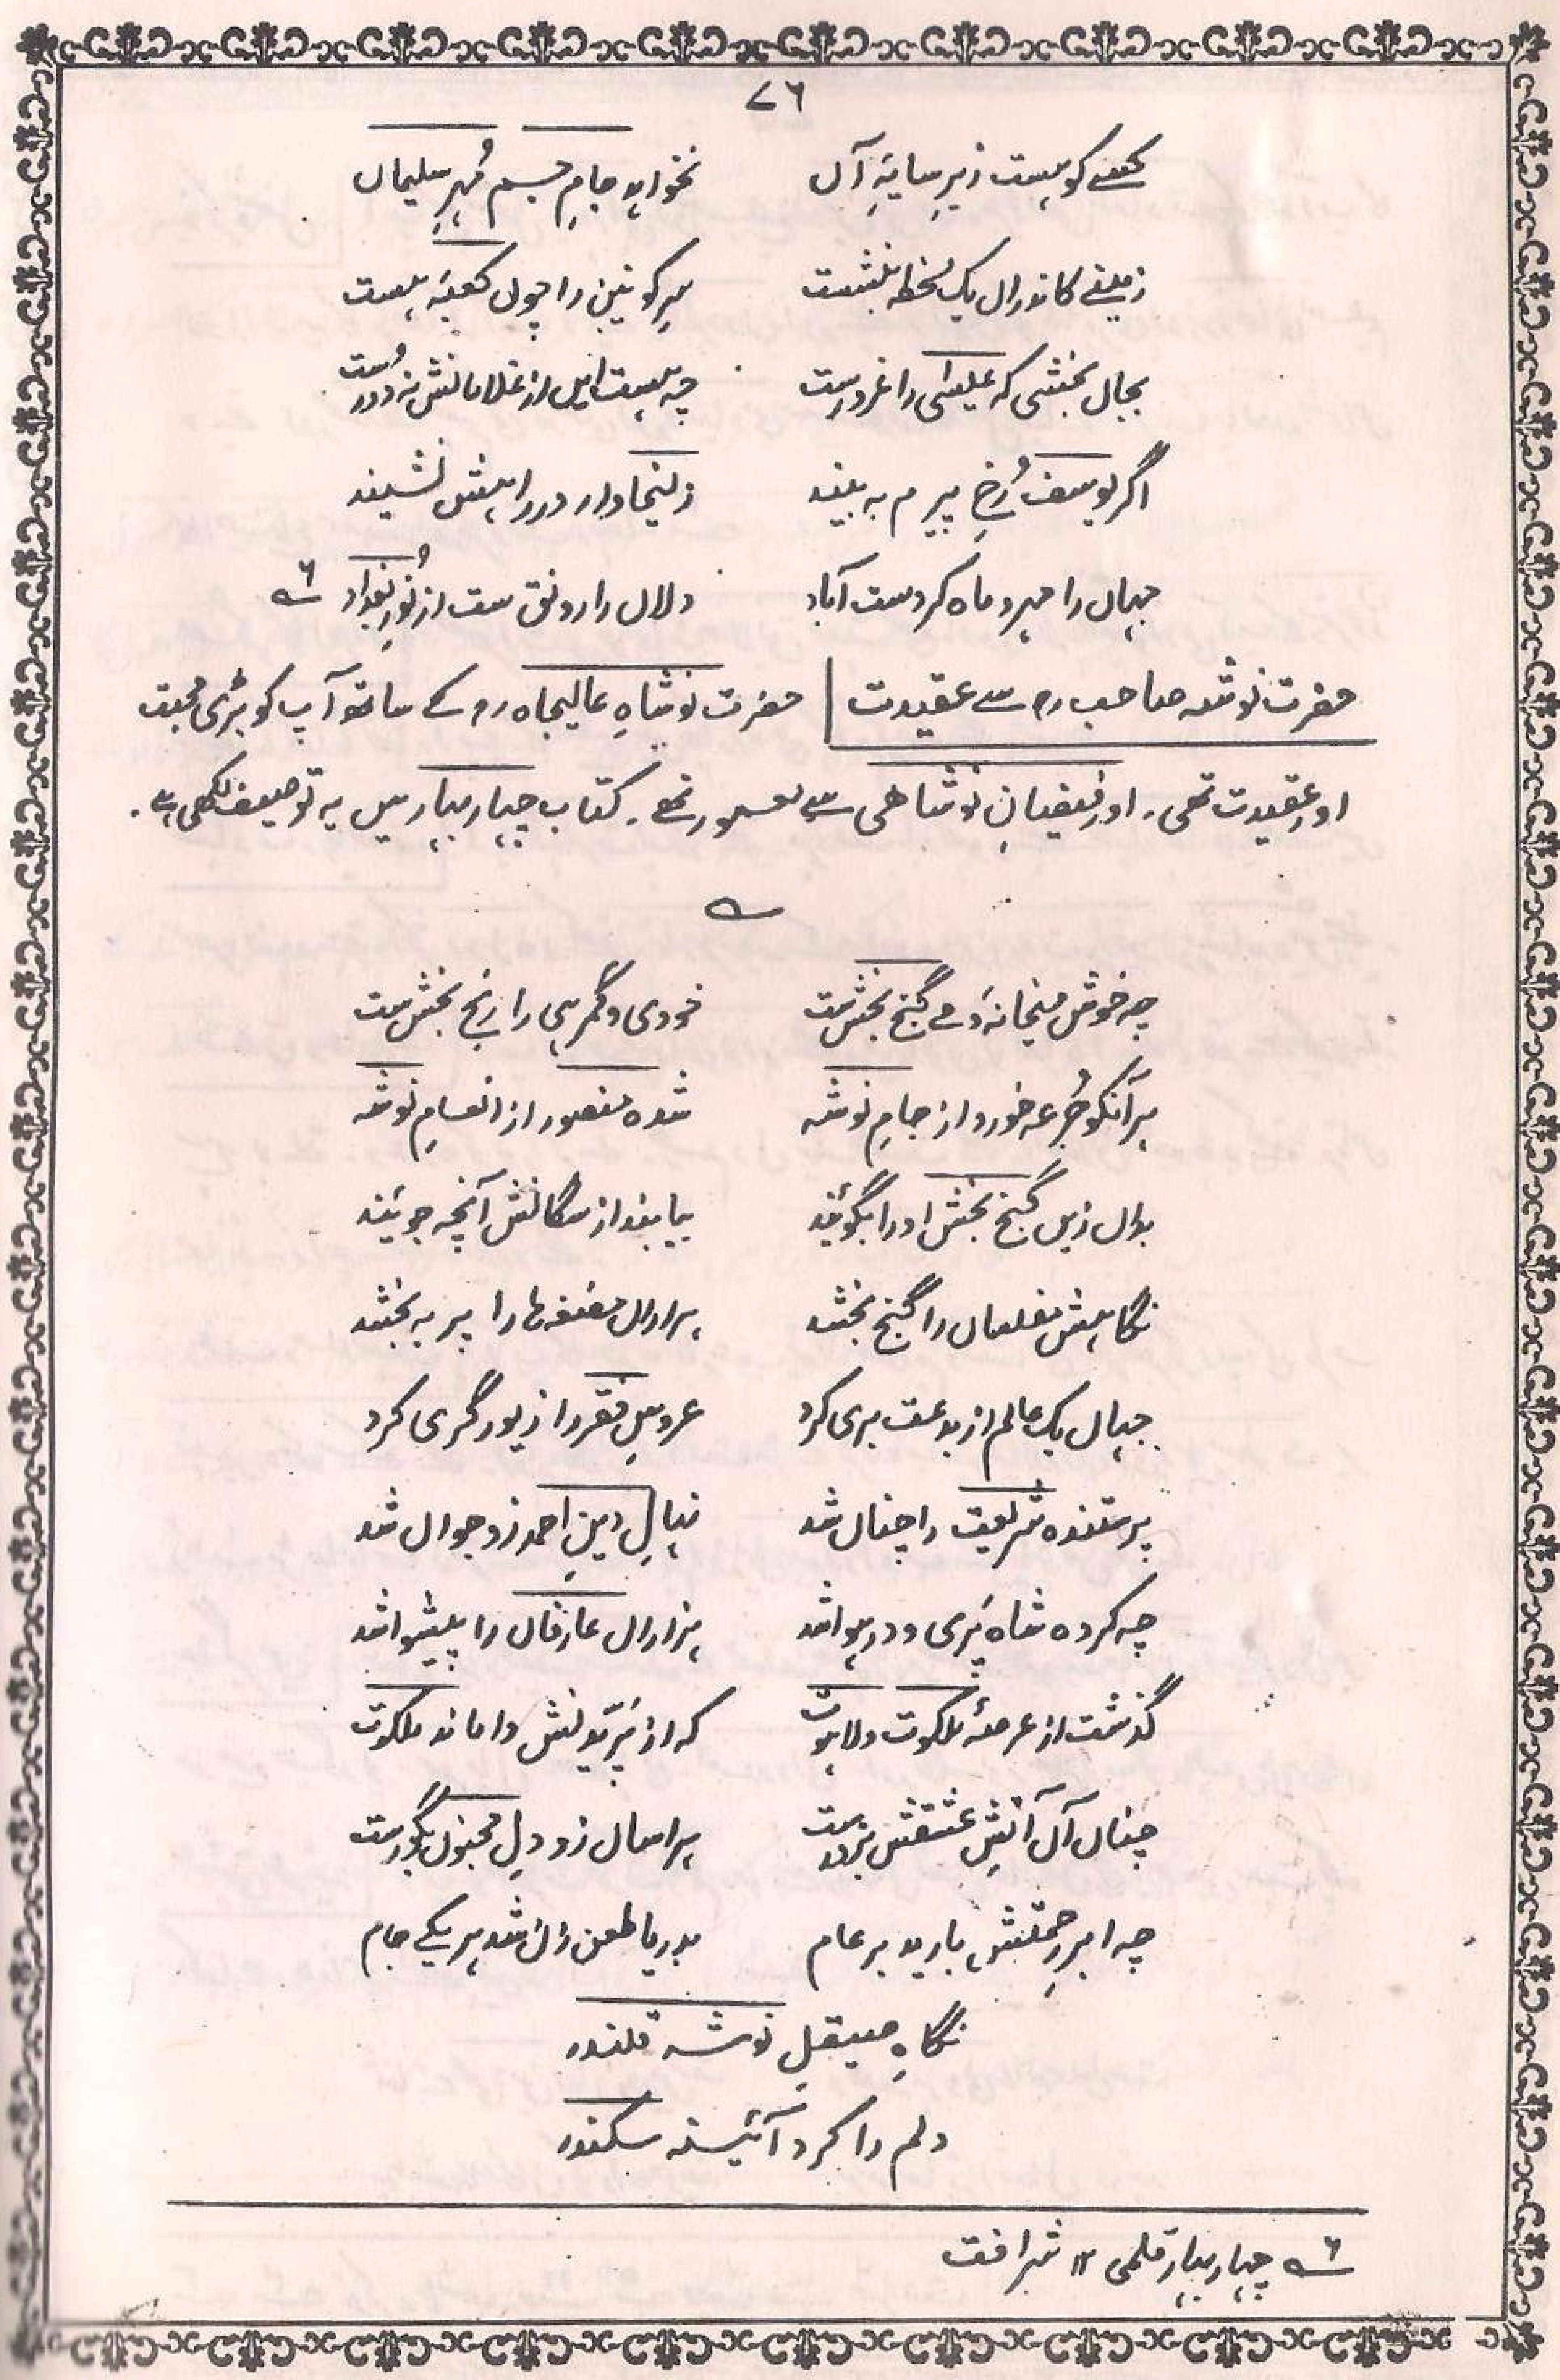 ۷۶
کسے کو ہست زیرِ سایۂِ آں نخواہد جامِ جسم مُہرِ سلیماں
زمینے کاندراں یک لحظہ بنشست سرِ کونین را چوں کعبہ ہست
بجاں بخشی کہ عیسٰی را غرورست چہ ہست ایں از غلامانش نہ دُورست
اگر یوسف رُخِ پیرم بہ بیند زلیخا وار در راہش نشیند
جہاں را مہر و ماہ کردست آباد دلاں را رونق ست از نُورِ بغداد ؎۶
حضرت نوشہ صاحب رح سے عقیدت | حضرت نوشاہِ عالیجاہ رح کے ساتھ آپ کو بڑی محبت
اور عقیدت تھی۔ اور فیضانِ نوشاہی سے معمور تھے۔ کتاب چہار بہار میں یہ توصیف لکھی ہے۔
؎
چہ خوش میخانۂ مے گنج بخش ست خودی و گمرہی را رنج بخش ست
ہر آنکو جُرعہ خورد از جامِ نوشہ شدہ منصور از انعامِ نوشہ
بداں زیں گنج بخش او را بگویند بیابند از سگانش آنچہ جویند
نگاہش مفلساں را گنج بخشد ہزاراں مضغہ ہا را پر بہ بخشد
جہاں یک عالم از بدعت بری کرد عروسِ فقر را زیور گری کرد
پرستندہ شریعت را چناں شد نہالِ دینِ احمد زو جواں شد
چہ کردہ شاہ پَری و در ہوا شد ہزاراں عارفاں را پیشوا شد
گذشت از عرصۂ ملکوت و لاہوت کہ از پَرِّیدنش واماند ملکوت
چناں آں آتشِ عشقش بزورست ہراساں زو دلِ مجنوں بگورست
چہ ابرِ رحمتش بارید بر عام بدریا طعن زن شد ہر یکے جام
نگاہِ صیقلِ نوشہ قلندر
دلم را کرد آئینہ سکندر
؎۶ چہار بہار قلمی ۱۲ شرافت